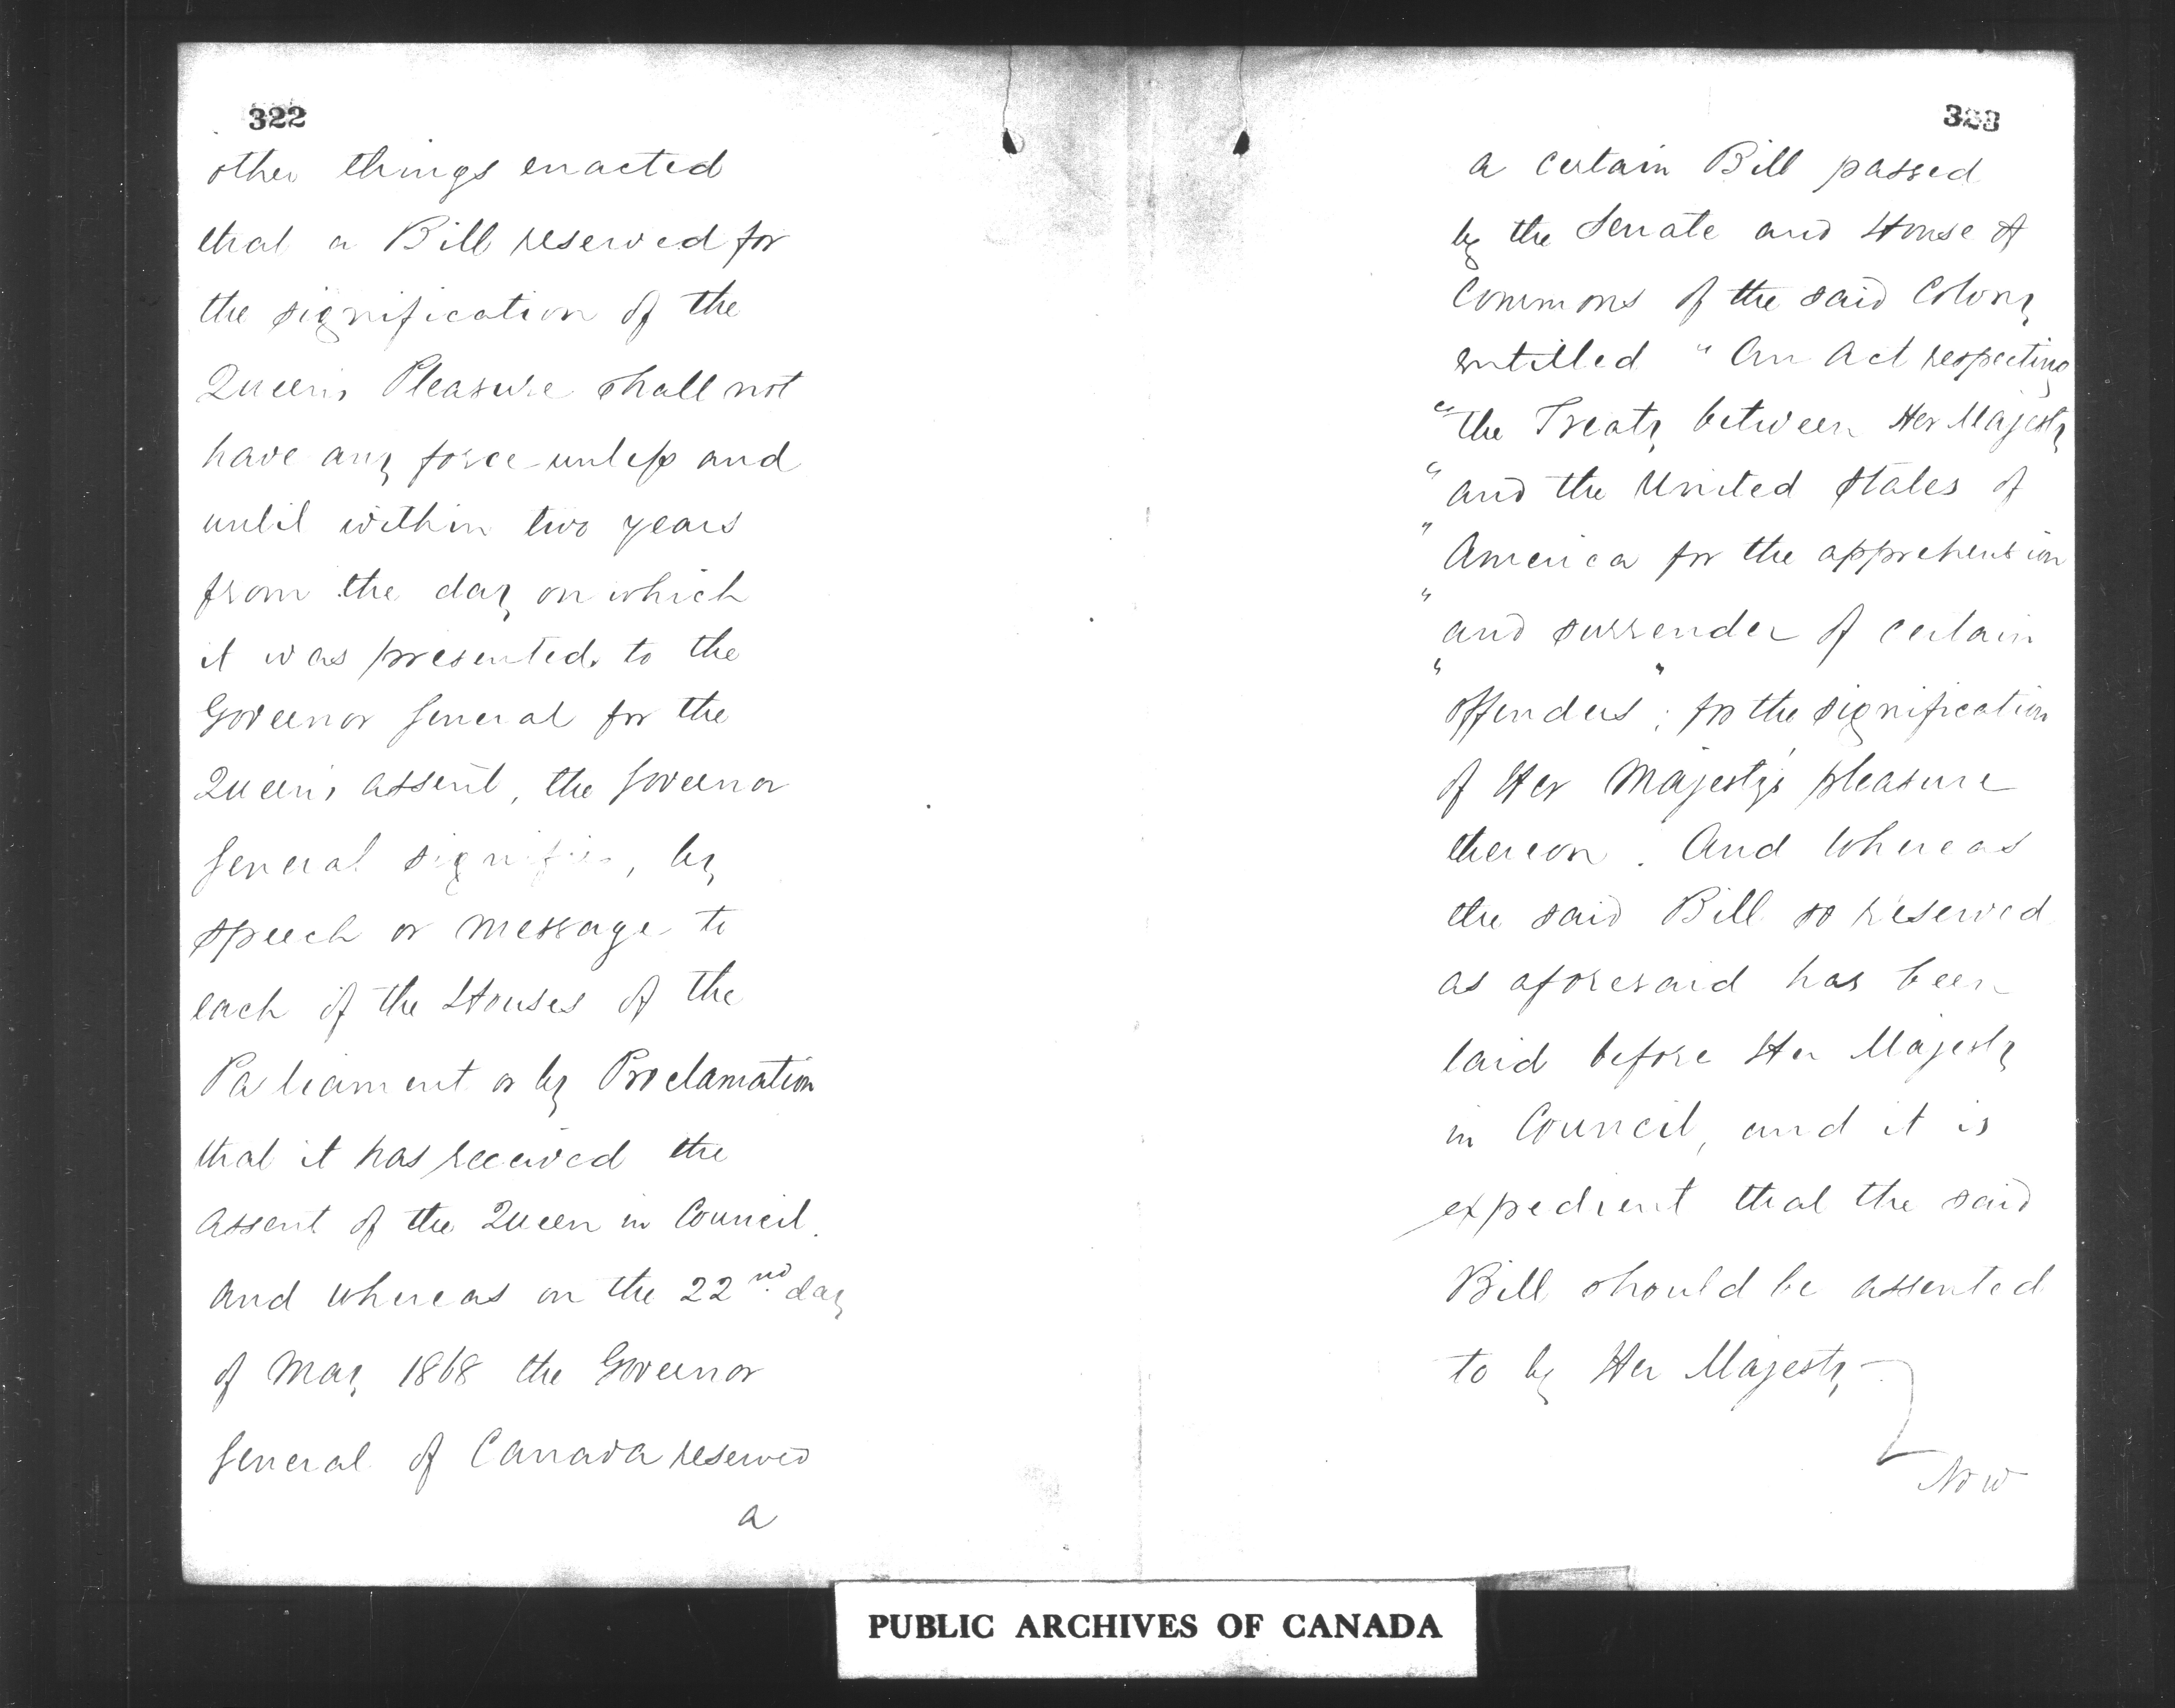 322
other things enacted
that a Bill reserved for
the signification of the
Queen's Pleasure shall not
have any force unless and
until within two years
from the day on which
it was presented to the
Governor General for the
Queen's assent, the Governor
General signifies, by
speech or message to
each of the Houses of the
Parliament or by Proclamation
that it has received the
assent of the Queen in Council.
and whereas on the 22nd day
of May 1868 the Governor
General of Canada reserved
a
323
a certain Bill passed
by the Senate and House of
Commons of the said Colony
entitled "An Act respecting
"the Treaty between Her Majesty
"and the United States of
"America for the apprehension
"and surrender of certain
"offenders"; for the signification
of Her Majesty's pleasure
thereon. And Whereas
the said Bill so reserved
as aforesaid has been
laid before Her Majesty
in Council, and it is
expedient that the said
Bill should be assented
to by Her Majesty
Now
PUBLIC ARCHIVES OF CANADA